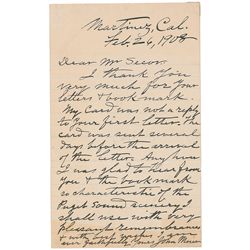 Martinez, Cal.
Feb. 26, 1908
Dear Mr
I thank you
very much for your
letters & bookmark
My card was not a reply
to your first letter. The
card was sent several
days before the arrival
of the letter. Anyhow
I was glad to hear from
you & the bookmark
so characteristic of the
Puget Sound scenery I
shall use with very
pleasant remembrances
& with good wishes, I am ever
faithfully yours John Muir